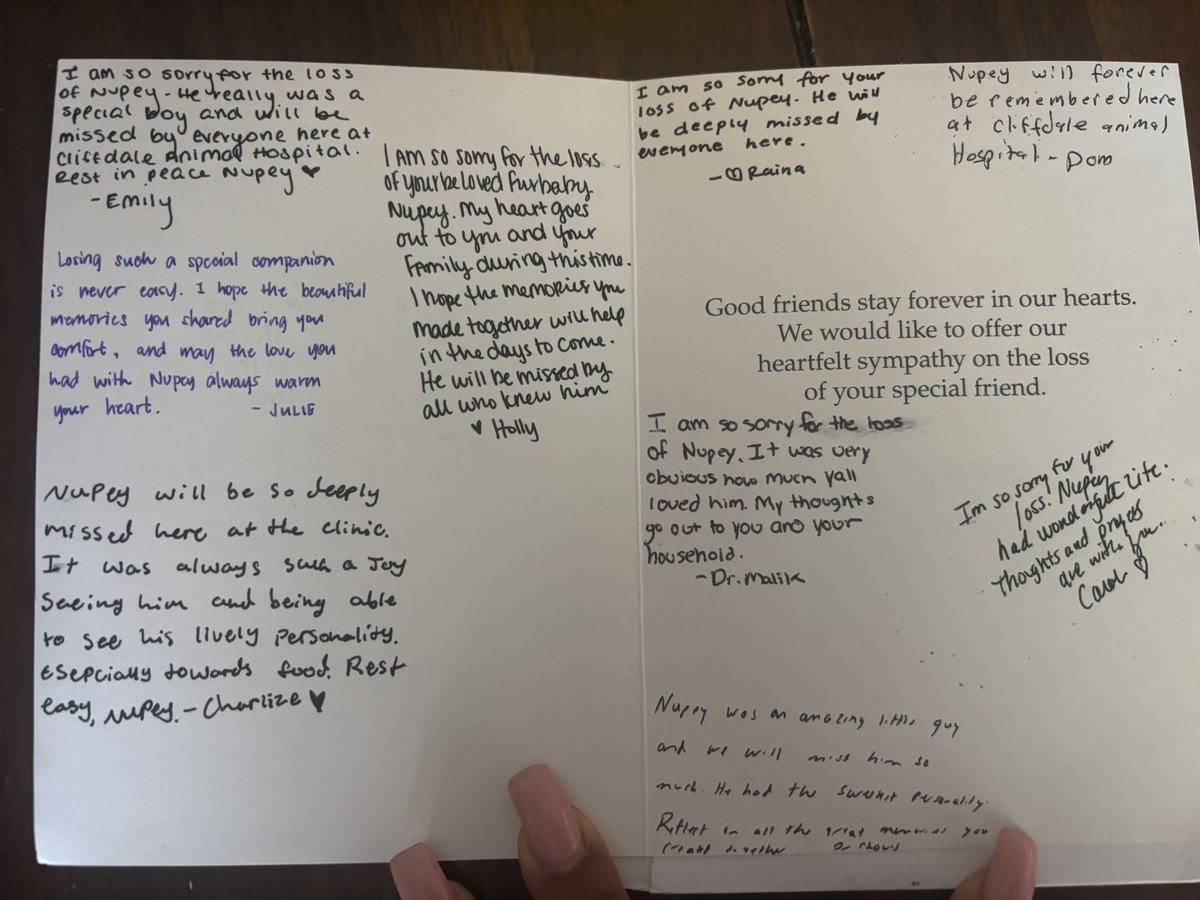 I am so sorry for the loss
of Nupey - He really was a
special boy and will be
missed by everyone here at
Cliffdale Animal Hospital.
Rest in peace Nupey ♥
- Emily
Losing such a special companion
is never easy. I hope the beautiful
memories you shared bring you
comfort, and may the love you
had with Nupey always warm
your heart. - JULIE
Nupey will be so deeply
missed here at the clinic.
It was always such a Joy
Seeing him and being able
to see his lively personality.
Esepcially towards food. Rest
easy, Nupey. - Charlize ♥
I AM so sorry for the loss
of your beloved furbaby
Nupey. My heart goes
out to you and your
family during this time.
I hope the memories you
made together will help
in the days to come.
He will be missed by
all who knew him
♥ Holly
I am so sorry for your
loss of Nupey. He will
be deeply missed by
everyone here.
- ♡ Raina
Nupey will forever
be remembered here
at Cliffdale animal
Hospital - Dom
Good friends stay forever in our hearts.
We would like to offer our
heartfelt sympathy on the loss
of your special friend.
I am so sorry for the loss
of Nupey. It was very
obvious how much yall
loved him. My thoughts
go out to you and your
household.
- Dr. Malik
Im so sorry for your
loss. Nupey
had wonderful life.
Thoughts and prayers
are with you.
Carol ♡
Nupey was an amazing little guy
and we will miss him so
much. He had the sweetest personality.
Reflect on all the great memories you
created together Dr